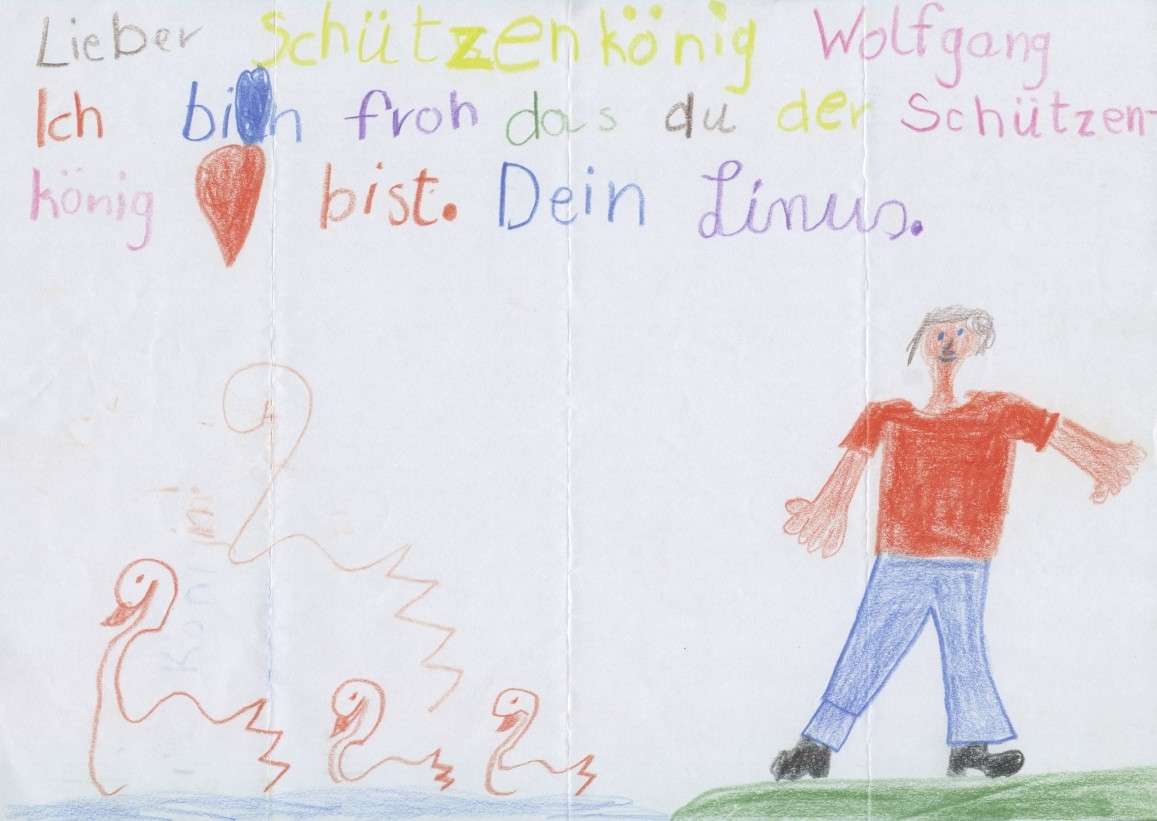 Lieber Schützenkönig Wolfgang
Ich bin froh das du der Schützen-
könig bist. Dein Linus.